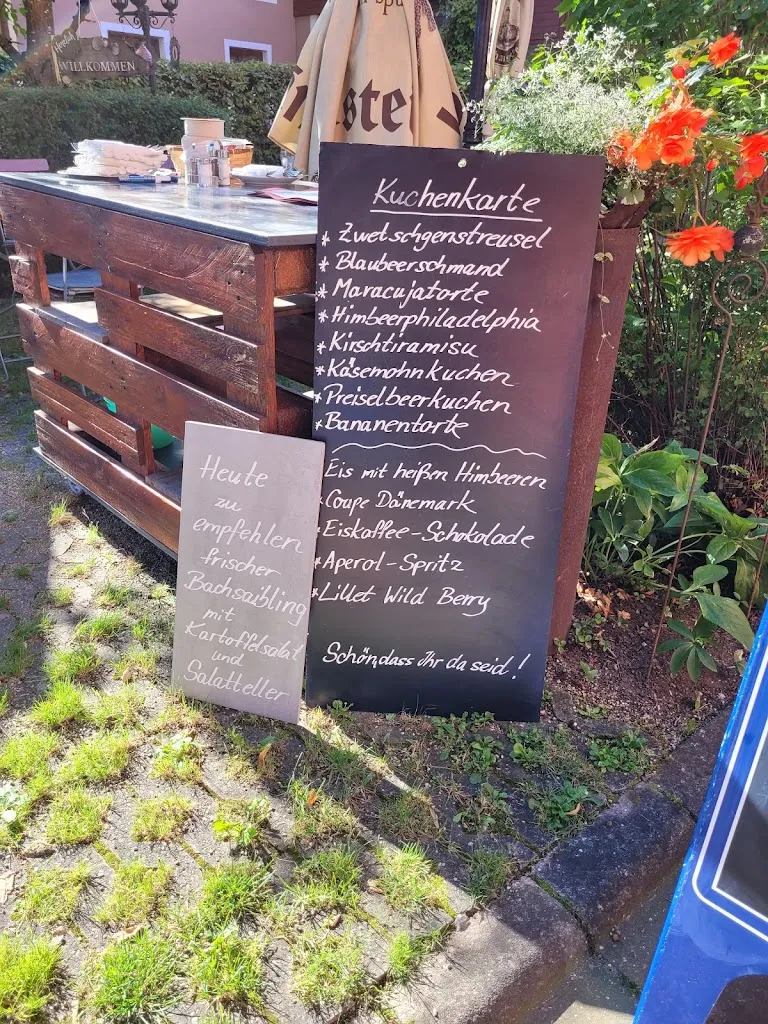 Herzlich
WILLKOMMEN
Kuchenkarte
* Zwetschgenstreusel
* Blaubeerschmand
* Maracujatorte
* Himbeerphiladelphia
* Kirschtiramisu
* Käsemohnkuchen
* Preiselbeerkuchen
* Bananentorte
Eis mit heißen Himbeeren
* Coupe Dänemark
* Eiskaffee-Schokolade
* Aperol-Spritz
* Lillet Wild Berry
Schön, dass Ihr da seid!
Heute
zu
empfehlen
frischer
Bachsaibling
mit
Kartoffelsalat
und
Salatteller